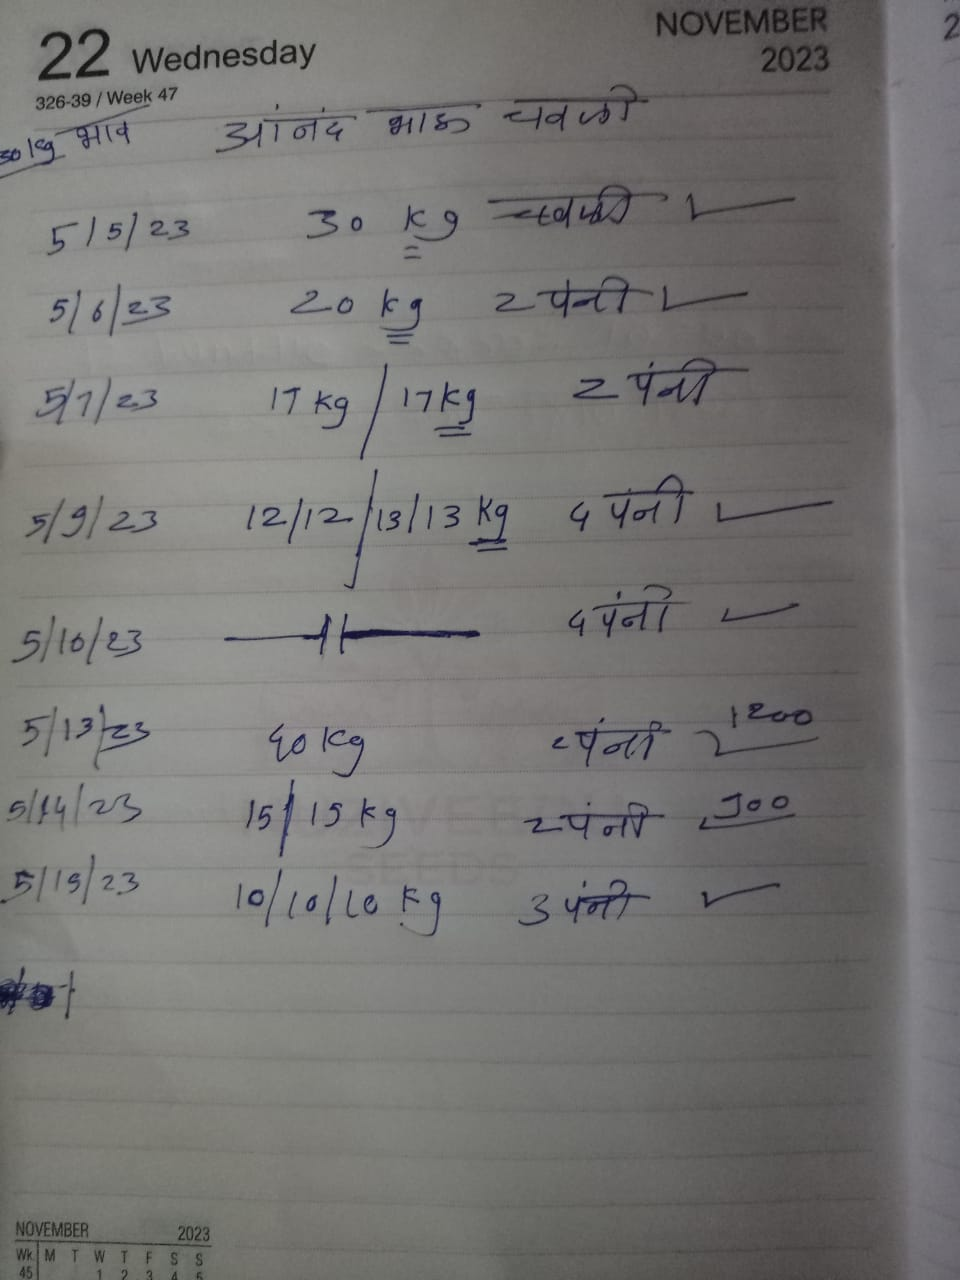 22 Wednesday
NOVEMBER
2023
326-39 / Week 47
30 kg भाव
आंनंद भाऊ चवळी
5/5/23 30 kg चवळी ✓
5/6/23 20 kg 2 पंनी ✓
5/7/23 17 kg / 17 kg 2 पंनी
5/9/23 12/12/13/13 kg 4 पंनी ✓
5/10/23 —||— 4 पंनी ✓
5/13/23 40 kg 2 पंनी 1200
5/14/23 15/15 kg 2 पंनी 900
5/15/23 10/10/10 kg 3 पंनी ✓
SEEDS
NOVEMBER 2023
Wk M T W T F S S
45 1 2 3 4 5